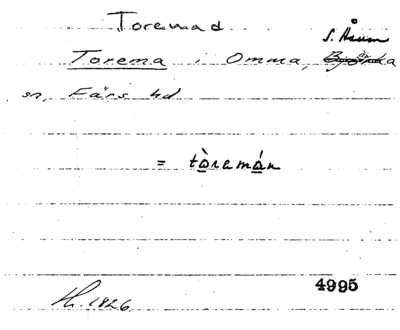 Toremad
S. Åsum
Torema i Omma, Björka
sn, Färs hd
= tòremán
4995
1826